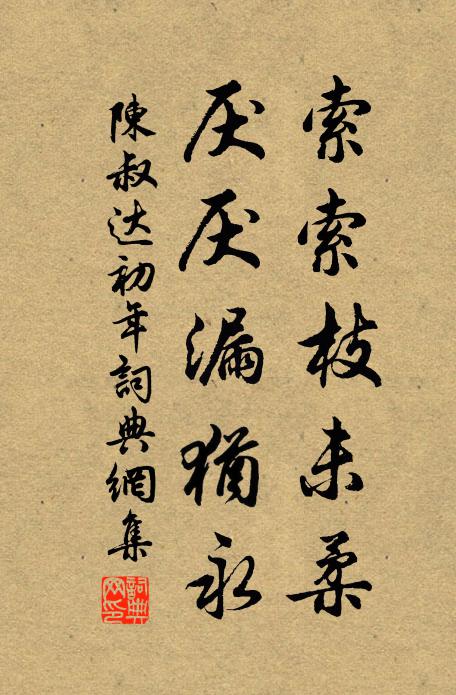 索索枝未柔
厌厌漏犹永
陳叔达初年詞典網集
詞典网印